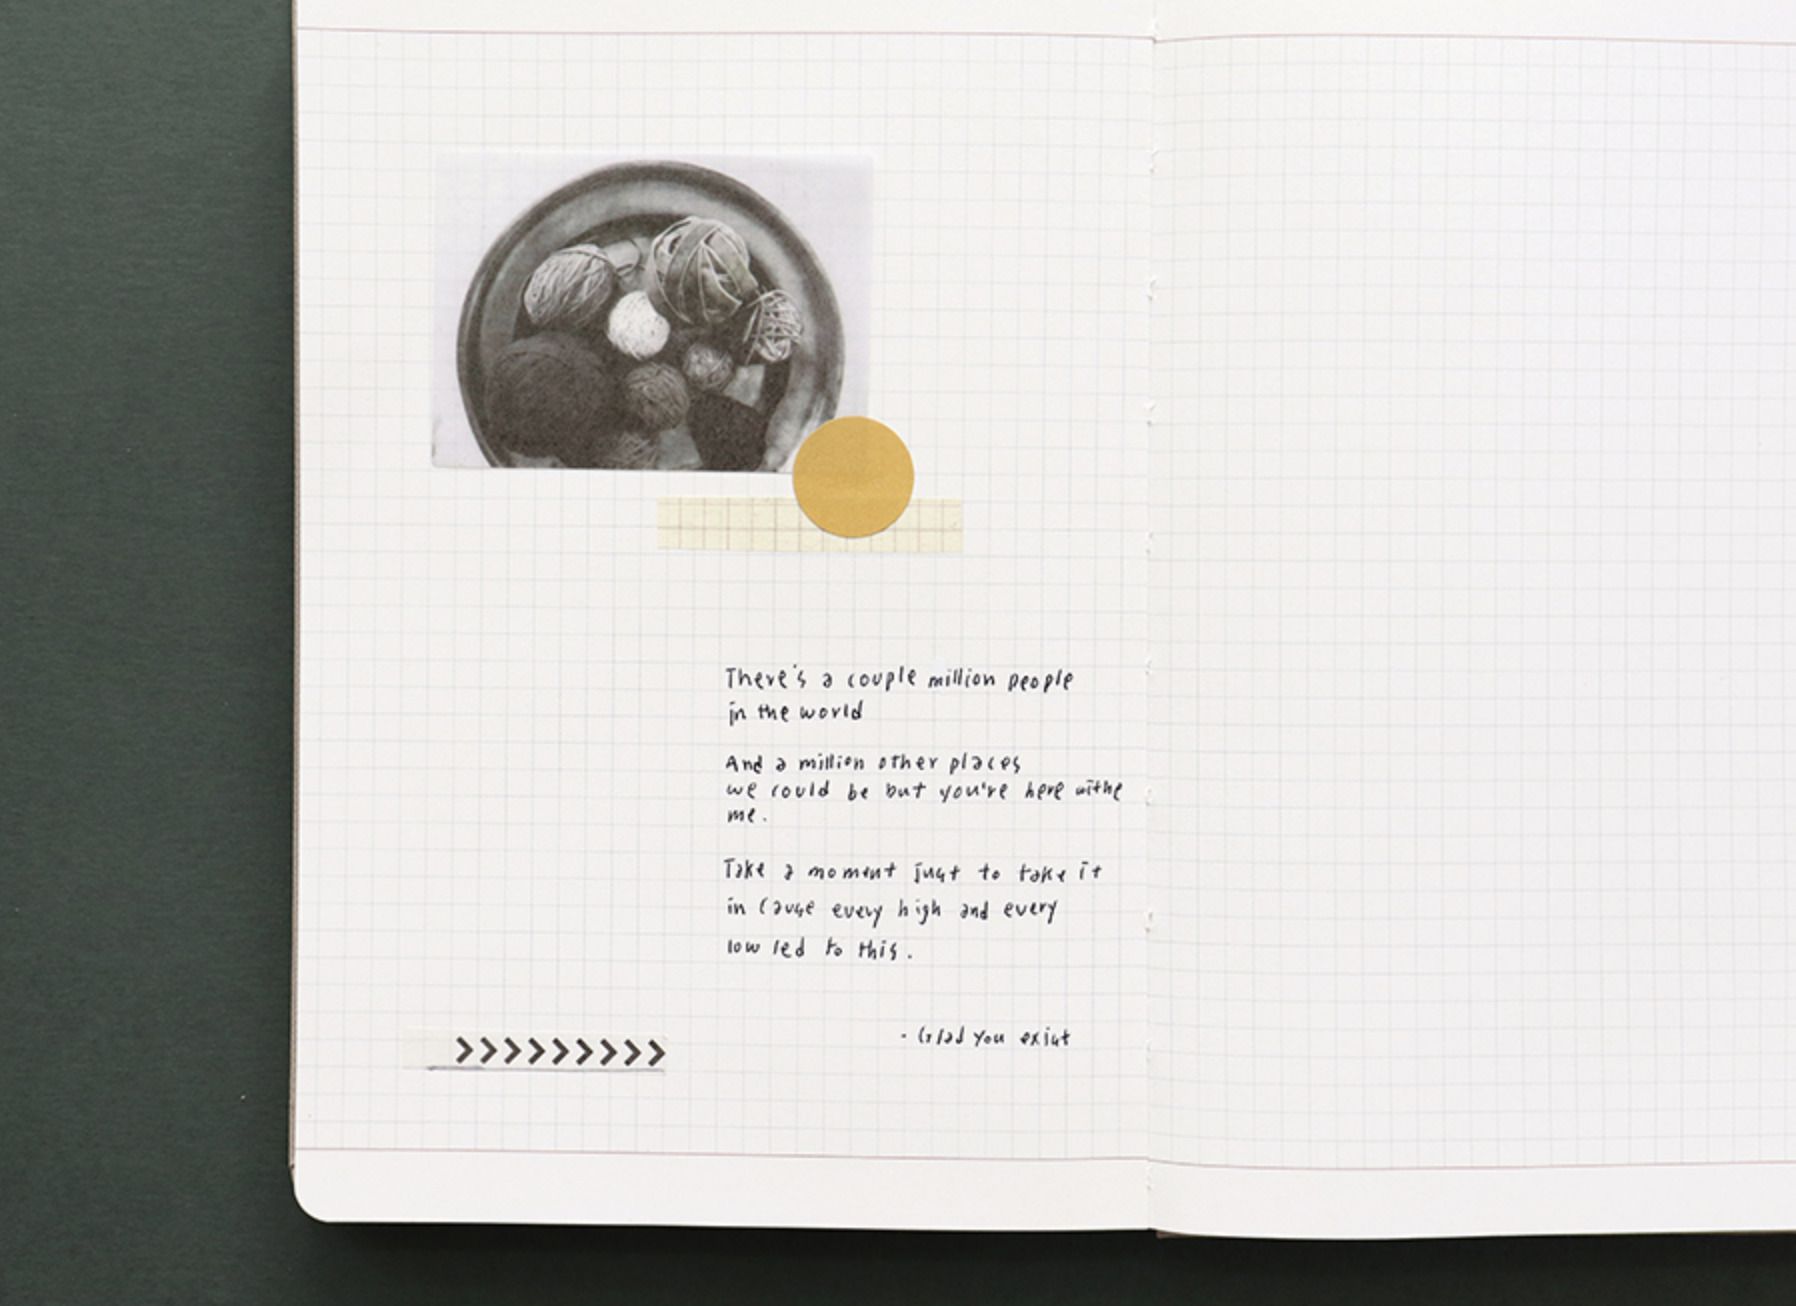 There's a couple million people
in the world
And a million other places
we could be but you're here withe
me.
Take a moment just to take it
in cause every high and every
low led to this.
- Glad you exist